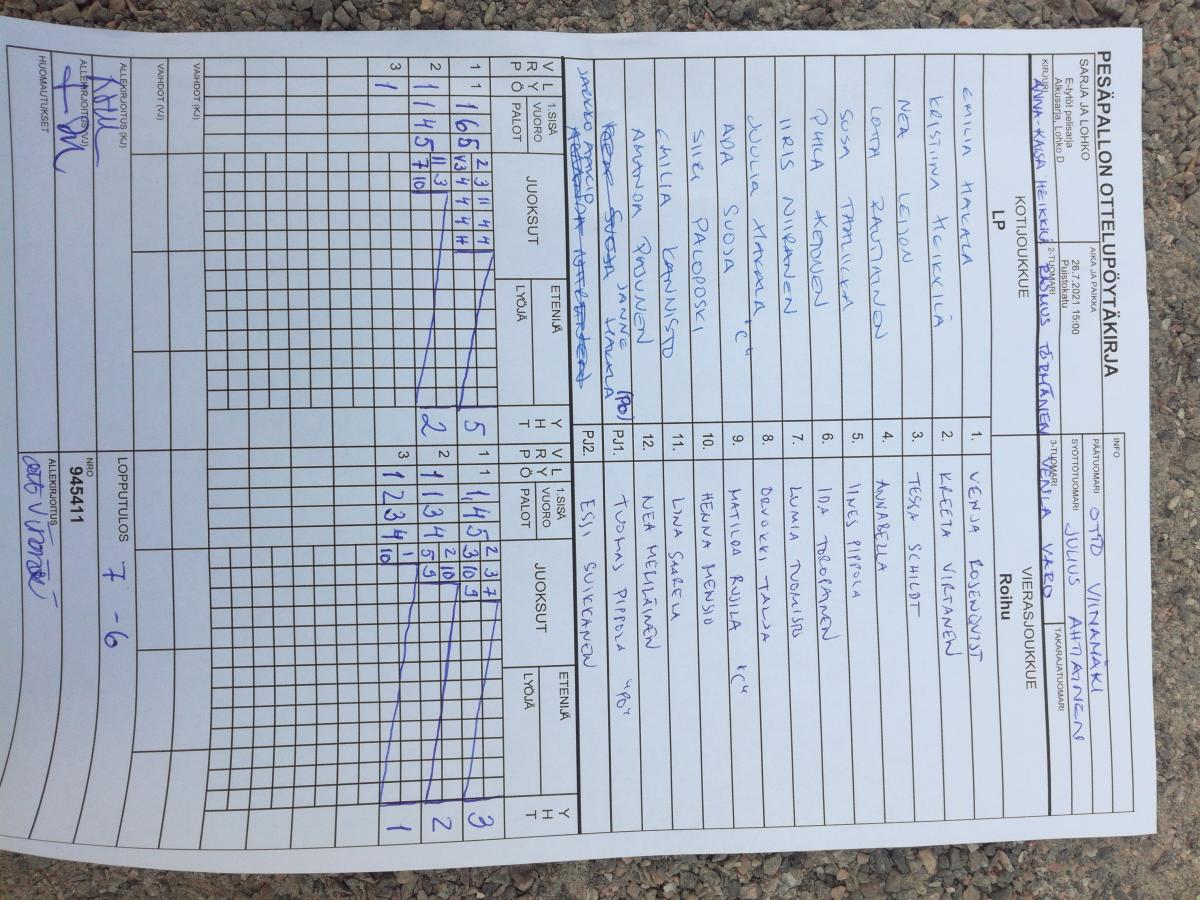 PESÄPALLON OTTELUPÖYTÄKIRJA
INFO
SARJA JA LOHKO
E-tytöt pelisarja
Alkusarja, Lohko D
AIKA JA PAIKKA
26.7.2021 15:00
Puistokatu
PÄÄTUOMARI OTTO VIINAMÄKI
SYÖTTÖTUOMARI JULIUS AHTIAINEN
TAKARAJATUOMARI
KIRJURI ANNA-KAISA HEIKKILÄ
2-TUOMARI RASMUS TÖRMÄNEN
3-TUOMARI VENLA VARO
KOTIJOUKKUE
LP
VIERASJOUKKUE
Roihu
EMILIA HAKALA 1. VENJA ROSENQVIST
KRISTIINA HEIKKILÄ 2. KREETA VIRTANEN
NEA LEIJON 3. TESSA SCHILDT
LOTTA RAUTIAINEN 4. ANNABELLA
SUSA TAALIKKA 5. IINES PIPPOLA
PIHLA KETONEN 6. IDA TOROPAINEN
IIRIS NIIRANEN 7. LUMIA TUOMISTO
JUULIA HAKALA 8. ORVOKKI TALJA
ADA SUOJA "C" 9. MATILDA RUILA "C"
SIIRI PALOPOSKI 10. HENNA MENSIO
EMILIA KANNISTO 11. LINA SAARELA
AMANDA PAJUNEN 12. NEA MELLÄINEN
JANNE HAKALA (PO) PJ1. TUOMAS PIPPOLA "PO"
JARKKO PJ2. ESSI SUIKKANEN
V R L Y Ö 1.SISÄ VUORO PALOT JUOKSUT ETENIJÄ LYÖJÄ Y H T V R L Y Ö 1.SISÄ VUORO PALOT JUOKSUT ETENIJÄ LYÖJÄ Y H T
1 1 1 6 5 2 3 11 4 4 V3 4 4 4 H 5 1 1 1,4 5 2 3 7 3 10 9 3
2 1 1 4 5 11 3 7 10 2 2 1 1 3 4 2 10 5 9 2
3 1 3 1 2 3 4 1 10 1
VAIHDOT (KJ)
VAIHDOT (VJ)
ALLEKIRJOITUS (KJ)
LOPPUTULOS 7 - 6
ALLEKIRJOITUS (VJ)
NRO
945411
HUOMAUTUKSET
ALLEKIRJOITUS